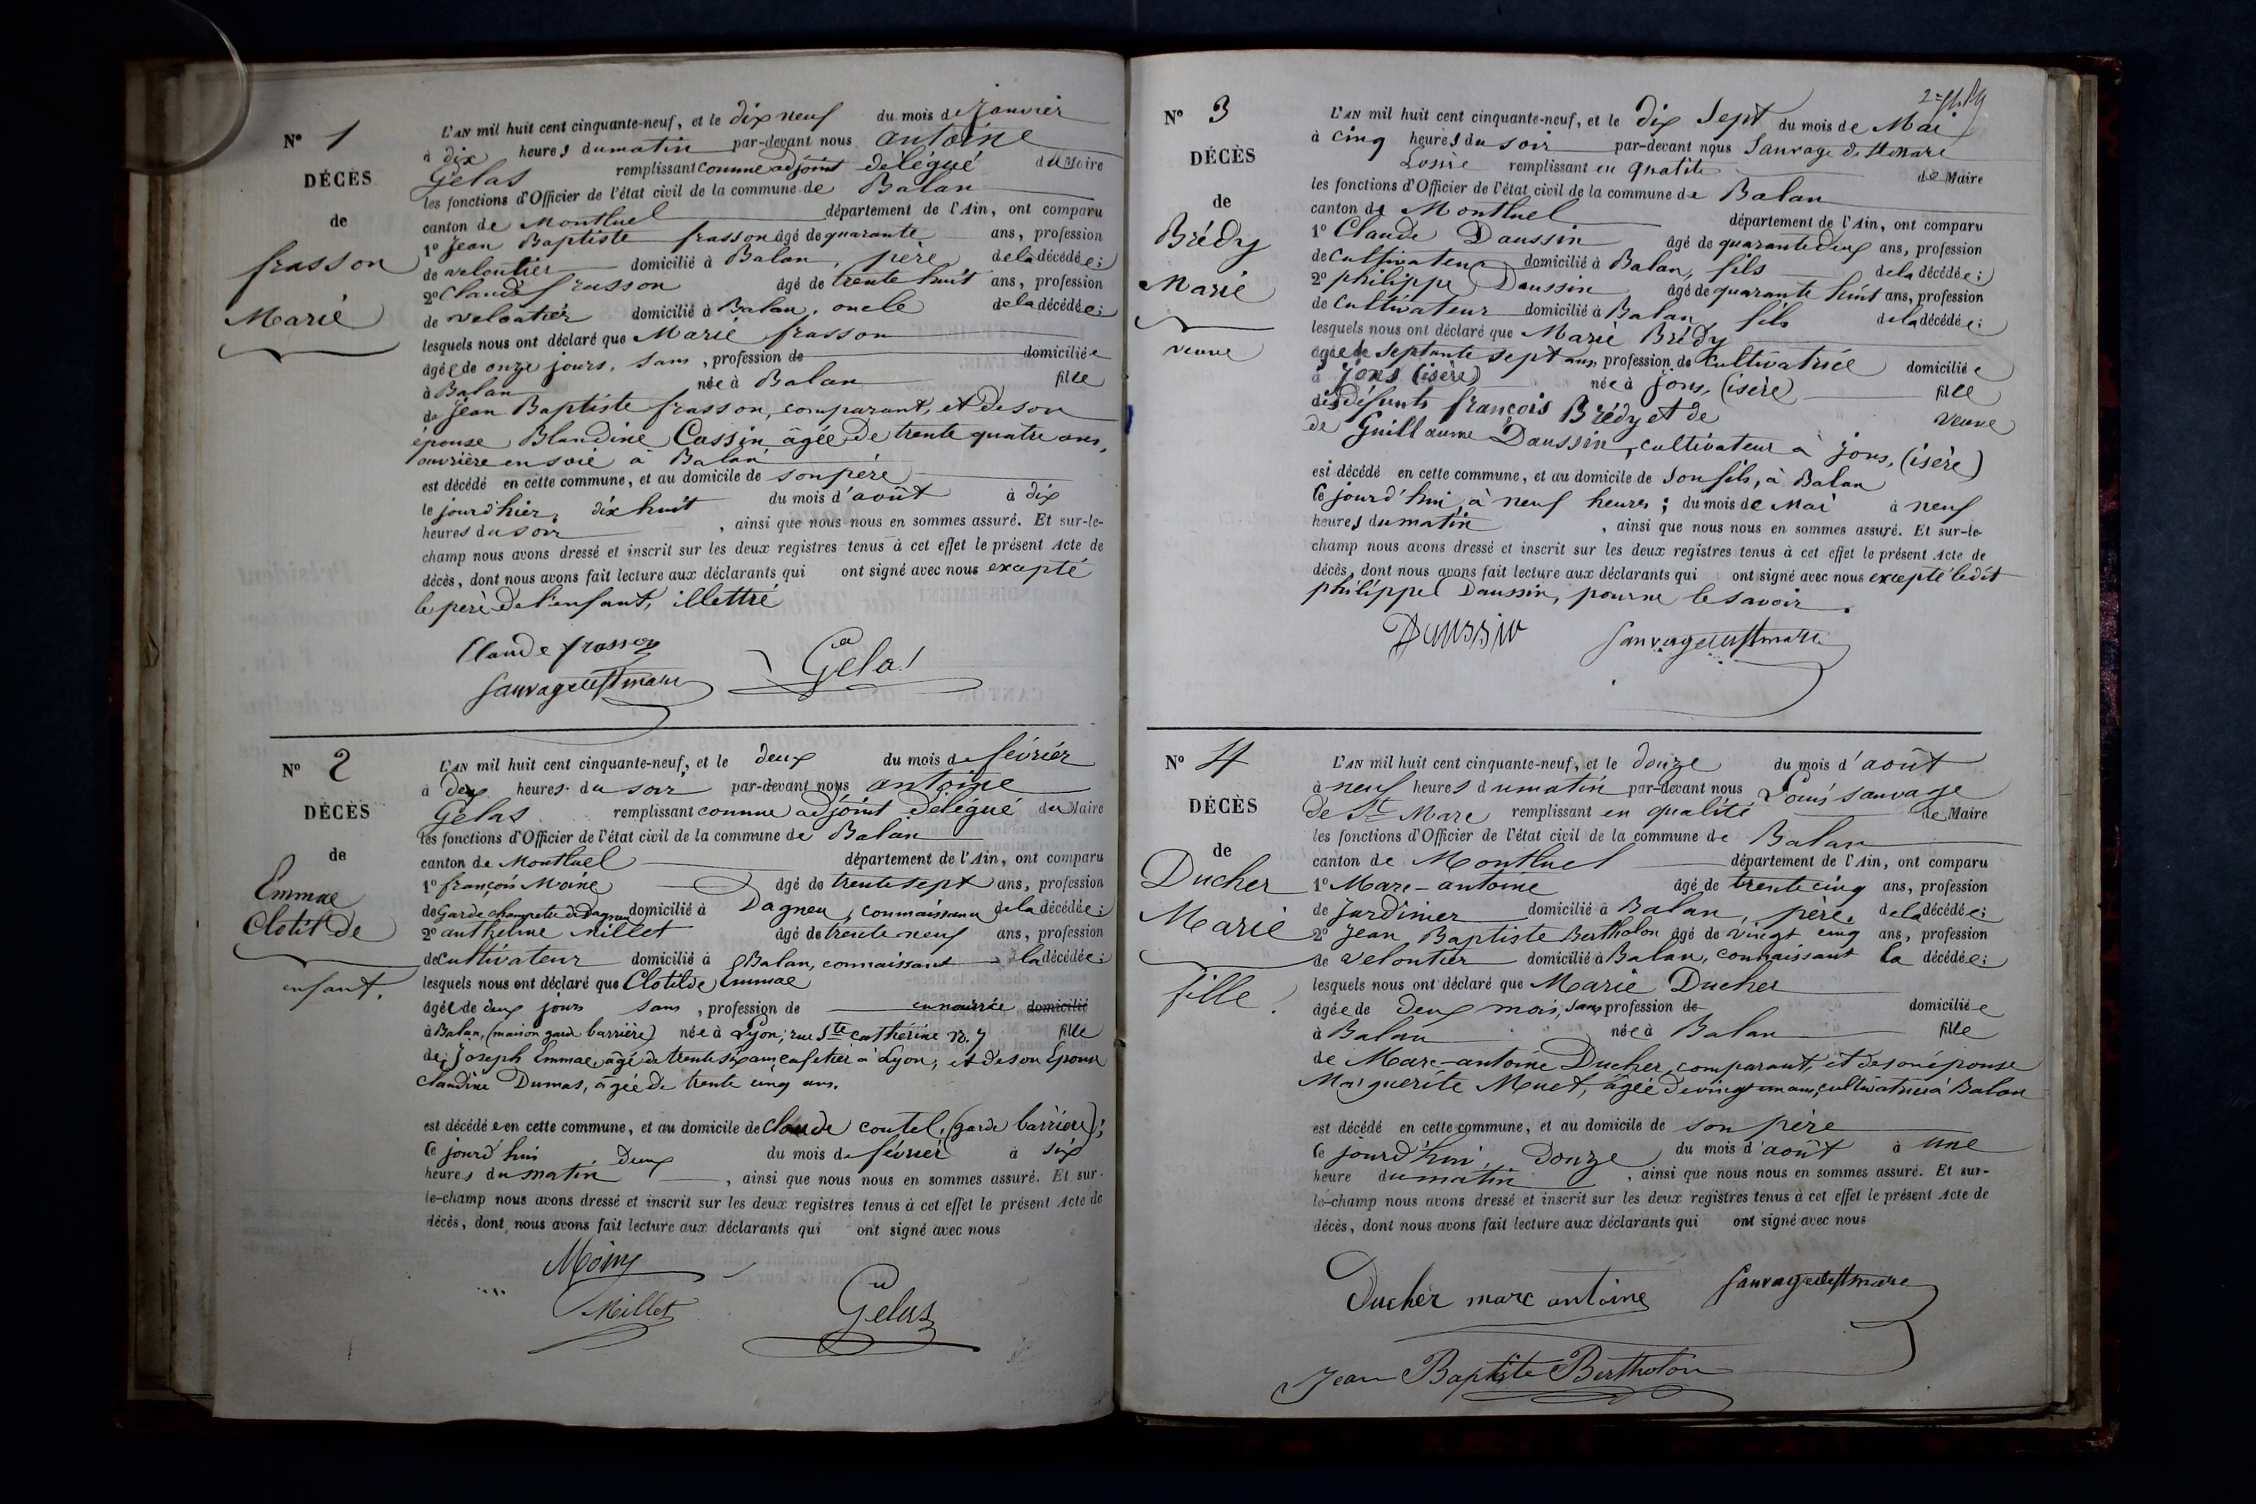 N° 1
DÉCÈS
de
frasson
Marie
L'AN mil huit cent cinquante-neuf, et le dix neuf du mois de Janvier
à dix heures du matin par-devant nous antoine
Gelas remplissant comme adjoint delégué du Maire
les fonctions d'Officier de l'état civil de la commune de Balan
canton de Montluel département de l'Ain, ont comparu
1° Jean Baptiste frasson âgé de quarante ans, profession
de veloutier domicilié à Balan, père de la décédée;
2° Claude frasson âgé de trente huit ans, profession
de veloutier domicilié à Balan, oncle de la décédée;
lesquels nous ont déclaré que Marie frasson
âgée de onze jours, sans, profession de domiciliée
à Balan née à Balan fille
de Jean Baptiste frasson, comparant, et de son
épouse Blandine Cassin âgée de trente quatre ans,
ouvrière en soie à Balan
est décédé en cette commune, et au domicile de son père
le jourd'hier, dix huit du mois d'août à dix
heures du soir, ainsi que nous nous en sommes assuré. Et sur-le-
champ nous avons dressé et inscrit sur les deux registres tenus à cet effet le présent Acte de
décès, dont nous avons fait lecture aux déclarants qui ont signé avec nous excepté
le père de l'enfant, illettré
Claude frasson
Sauvagedestmarc
Gelas
N° 2
DÉCÈS
de
Emmae
Clotilde
enfant.
L'AN mil huit cent cinquante-neuf, et le deux du mois de février
à deux heures du soir par-devant nous antoine
Gelas remplissant comme adjoint délégué du Maire
les fonctions d'Officier de l'état civil de la commune de Balan
canton de Montluel département de l'Ain, ont comparu
1° françois Moine âgé de trente sept ans, profession
de Garde champetre de Dagneu domicilié à Dagneu, connaissant de la décédée;
2° anthelme Millet âgé de trente neuf ans, profession
de cultivateur domicilié à Balan, connaissant la décédée;
lesquels nous ont déclaré que Clotilde Emmae
âgée de deux jours sans, profession de en nourrice domicilié
à Balan, (maison garde barrière) née à Lyon, rue Ste catherine N. 7 fille
de Joseph Emmae, âgé de trente six ans, cafetier à Lyon, et de son Epouse
Claudine Dumas, âgée de trente cinq ans.
est décédée en cette commune, et au domicile de Claude coutel, (garde barrière);
Ce jourd'hui Deux du mois de février à six
heures du matin, ainsi que nous nous en sommes assuré. Et sur-
le-champ nous avons dressé et inscrit sur les deux registres tenus à cet effet le présent Acte de
décès, dont nous avons fait lecture aux déclarants qui ont signé avec nous
Moine
Millet
Gelas
N° 3
DÉCÈS
de
Brédy
Marie
veuve
L'AN mil huit cent cinquante-neuf, et le dix Sept du mois de Mai
à cinq heures du soir par-devant nous Sauvage de St Marc
Louis remplissant en qualité de Maire
les fonctions d'Officier de l'état civil de la commune de Balan
canton de Montluel département de l'Ain, ont comparu
1° Claude Daussin âgé de quarante deux ans, profession
de cultivateur domicilié à Balan, fils de la décédée;
2° philippe Daussin âgé de quarante huit ans, profession
de cultivateur domicilié à Balan fils de la décédée;
lesquels nous ont déclaré que Marie Brédy
âgée de septante sept ans, profession de Cultivatrice domiciliée
à Jons (isère) née à jons, (isère) fille
des défunts françois Brédy et de veuve
de Guillaume Daussin, cultivateur à Jons, (isère)
est décédé en cette commune, et au domicile de son fils, à Balan
Ce jourd'hui, à neuf heures; du mois de Mai à neuf
heures du matin, ainsi que nous nous en sommes assuré. Et sur-le-
champ nous avons dressé et inscrit sur les deux registres tenus à cet effet le présent Acte de
décès, dont nous avons fait lecture aux déclarants qui ont signé avec nous excepté ledit
philippe Daussin, pour ne le savoir.
Daussin
Sauvagedestmarc
N° 4
DÉCÈS
de
Ducher
Marie
fille
L'AN mil huit cent cinquante-neuf, et le douze du mois d'août
à neuf heures du matin par-devant nous Louis sauvage
De St Marc remplissant en qualité de Maire
les fonctions d'Officier de l'état civil de la commune de Balan
canton de Montluel département de l'Ain, ont comparu
1° Marc-antoine âgé de trente cinq ans, profession
de Jardinier domicilié à Balan, père, de la décédée;
2° Jean Baptiste Bertholon âgé de vingt cinq ans, profession
de veloutier domicilié à Balan, connaissant la décédée;
lesquels nous ont déclaré que Marie Ducher
âgée de deux mois, sans profession de domiciliée
à Balan née à Balan fille
de Marc-antoine Ducher, comparant, et de son épouse
Marguerite Muet, âgée de vingt un ans, cultivatrice à Balan
est décédé en cette commune, et au domicile de son père
Ce jourd'hui, douze du mois d'août à une
heure du matin, ainsi que nous nous en sommes assuré. Et sur-
le-champ nous avons dressé et inscrit sur les deux registres tenus à cet effet le présent Acte de
décès, dont nous avons fait lecture aux déclarants qui ont signé avec nous
Ducher marc antoine
Sauvagedestmarc
Jean Baptiste Bertholon